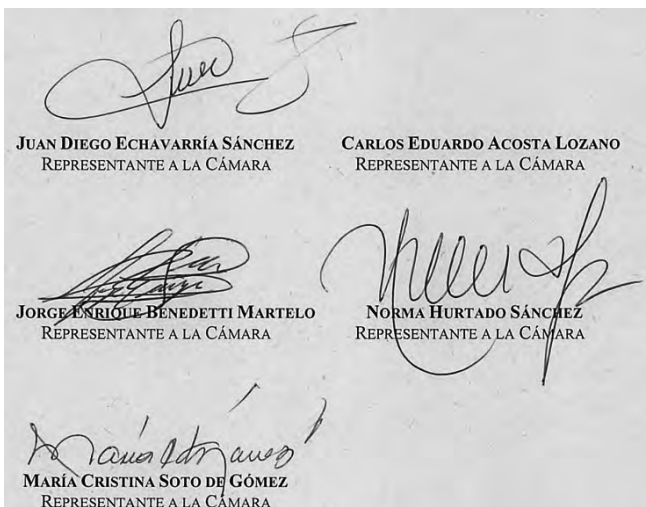 JUAN DIEGO ECHAVARRÍA SÁNCHEZ
REPRESENTANTE A LA CÁMARA
CARLOS EDUARDO ACOSTA LOZANO
REPRESENTANTE A LA CÁMARA
JORGE ENRIQUE BENEDETTI MARTELO
REPRESENTANTE A LA CÁMARA
NORMA HURTADO SÁNCHEZ
REPRESENTANTE A LA CÁMARA
MARÍA CRISTINA SOTO DE GÓMEZ
REPRESENTANTE A LA CÁMARA